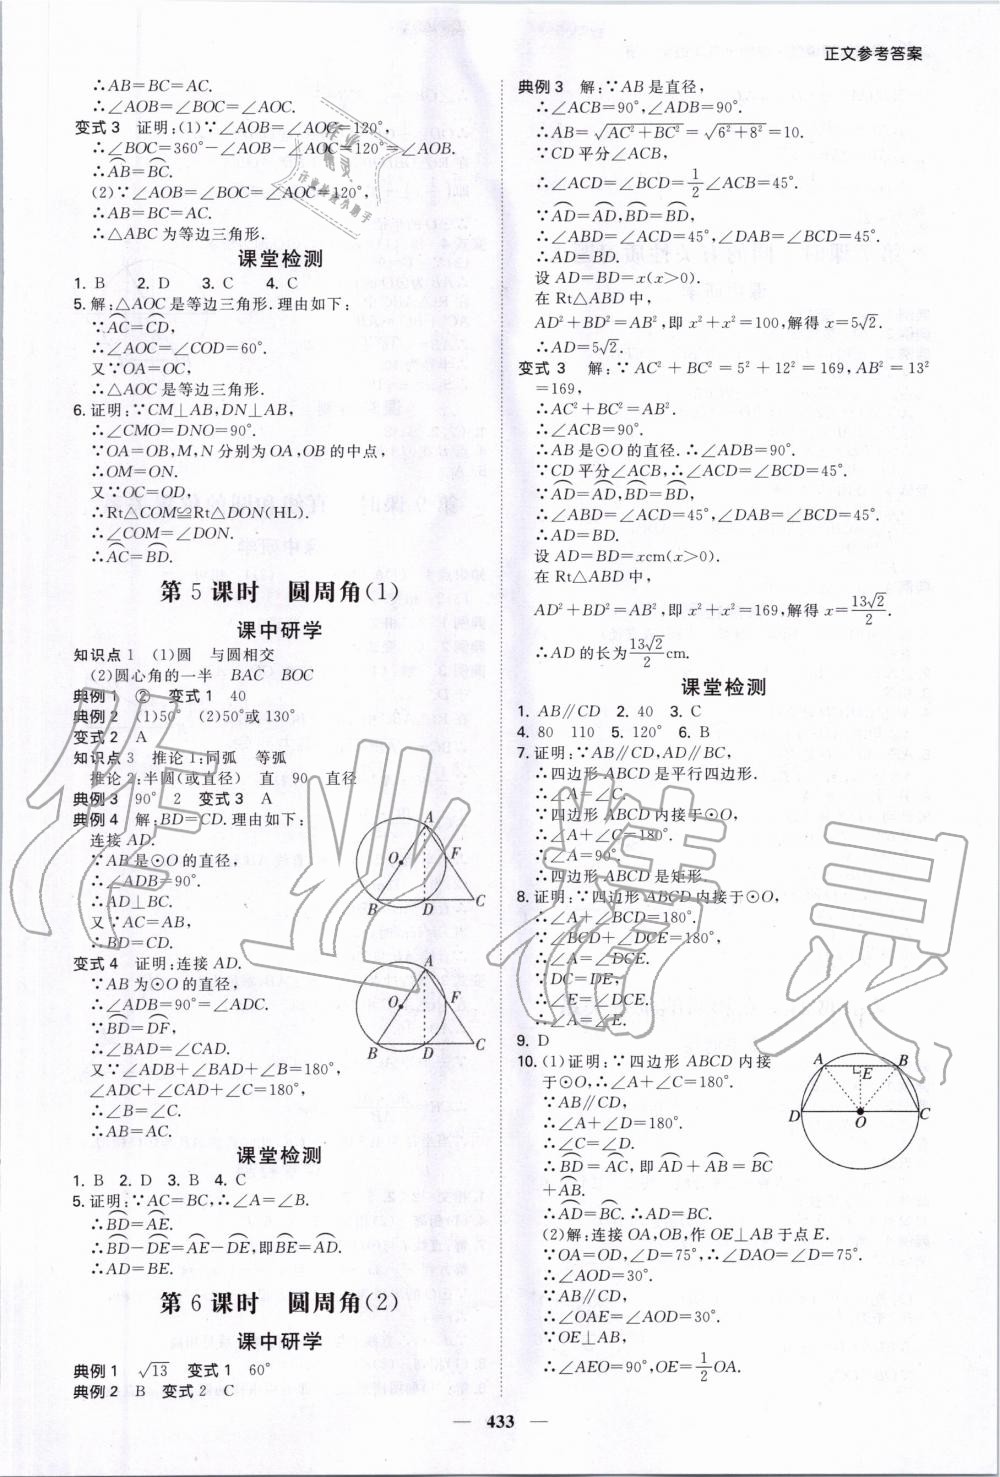 正文参考答案
∴AB=BC=AC.
∴∠AOB=∠BOC=∠AOC.
变式3 证明:(1)∵∠AOB=∠AOC=120°,
∴∠BOC=360°-∠AOB-∠AOC=120°=∠AOB.
∴A͡B=B͡C.
(2)∵∠AOB=∠BOC=∠AOC=120°,
∴AB=BC=AC.
∴△ABC为等边三角形.
课堂检测
1. B 2. D 3. C 4. C
5. 解:△AOC是等边三角形.理由如下:
∵A͡C=C͡D,
∴∠AOC=∠COD=60°.
又∵OA=OC,
∴△AOC是等边三角形.
6. 证明:∵CM⊥AB,DN⊥AB,
∴∠CMO=DNO=90°.
∵OA=OB,M,N分别为OA,OB的中点,
∴OM=ON.
又∵OC=OD,
∴Rt△COM≌Rt△DON(HL).
∴∠COM=∠DON.
∴A͡C=B͡D.
第5课时 圆周角(1)
课中研学
知识点1 (1)圆 与圆相交
(2)圆心角的一半 BAC BOC
典例1 ② 变式1 40
典例2 (1)50° (2)50°或130°
变式2 A
知识点3 推论1:同弧 等弧
推论2:半圆(或直径) 直 90 直径
典例3 90° 2 变式3 A
典例4 解:BD=CD.理由如下:
连接AD.
∵AB是⊙O的直径,
∴∠ADB=90°.
∴AD⊥BC.
又∵AC=AB,
∴BD=CD.
A
O
F
B D C
变式4 证明:连接AD.
∵AB为⊙O的直径,
∴∠ADB=90°=∠ADC.
∵B͡D=D͡F,
∴∠BAD=∠CAD.
又∵∠ADB+∠BAD+∠B=180°,
∠ADC+∠CAD+∠C=180°,
∴∠B=∠C.
∴AB=AC.
A
O
F
B D C
课堂检测
1. B 2. D 3. B 4. C
5. 证明:∵AC=BC,∴∠A=∠B.
∴B͡D=A͡E.
∴B͡D-D͡E=A͡E-D͡E,即B͡E=A͡D.
∴AD=BE.
第6课时 圆周角(2)
课中研学
典例1 √13 变式1 60°
典例2 B 变式2 C
典例3 解:∵AB是直径,
∴∠ACB=90°,∠ADB=90°.
∴AB=√(AC²+BC²)=√(6²+8²)=10.
∵CD平分∠ACB,
∴∠ACD=∠BCD=1/2∠ACB=45°.
∵A͡D=A͡D,B͡D=B͡D,
∴∠ABD=∠ACD=45°,∠DAB=∠BCD=45°.
∴AD=BD.
设AD=BD=x(x>0).
在Rt△ABD中,
AD²+BD²=AB²,即x²+x²=100,解得x=5√2.
∴AD=5√2.
变式3 解:∵AC²+BC²=5²+12²=169,AB²=13²
=169,
∴AC²+BC²=AB².
∴∠ACB=90°.
∴AB是⊙O的直径.∴∠ADB=90°.
∵CD平分∠ACB,∴∠ACD=∠BCD=45°.
∵A͡D=A͡D,B͡D=B͡D,
∴∠ABD=∠ACD=45°,∠DAB=∠BCD=45°.
∴AD=BD.
设AD=BD=xcm(x>0).
在Rt△ABD中,
AD²+BD²=AB²,即x²+x²=169,解得x=13√2/2.
∴AD的长为13√2/2cm.
课堂检测
1. AB∥CD 2. 40 3. C
4. 80 110 5. 120° 6. B
7. 证明:∵AB∥CD,AD∥BC,
∴四边形ABCD是平行四边形.
∴∠A=∠C.
∵四边形ABCD内接于⊙O,
∴∠A+∠C=180°.
∴∠A=90°.
∴四边形ABCD是矩形.
8. 证明:∵四边形ABCD内接于⊙O,
∴∠A+∠BCD=180°.
∵∠BCD+∠DCE=180°,
∴∠A=∠DCE.
∵DC=DE,
∴∠E=∠DCE.
∴∠A=∠E.
9. D
10. (1)证明:∵四边形ABCD内接
于⊙O,∴∠A+∠C=180°.
∵AB∥CD,
∴∠A+∠D=180°.
∴∠C=∠D.
∴B͡D=A͡C,即A͡D+A͡B=B͡C
+A͡B.
∴A͡D=B͡C.∴AD=BC.
A B
E
D O C
(2)解:连接OA,OB,作OE⊥AB于点E.
∵OA=OD,∠D=75°,∴∠DAO=∠D=75°.
∴∠AOD=30°.
∵AB∥CD,
∴∠OAE=∠AOD=30°.
∵OE⊥AB,
∴∠AEO=90°,OE=1/2OA.
433
作业精灵